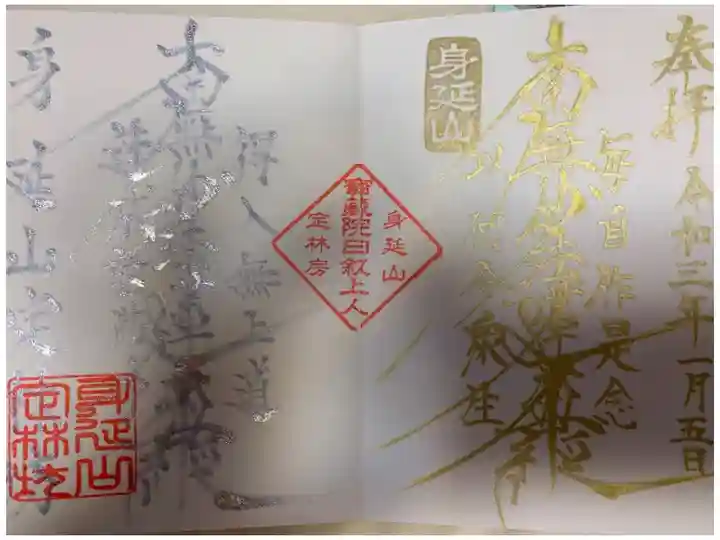 奉拝 令和三年一月五日
毎自作是念
南無妙法蓮華経
以何令衆生
身延山
身延山
寶蔵院日叙上人
定林房
得入無上道
身延山
身延山
定林坊